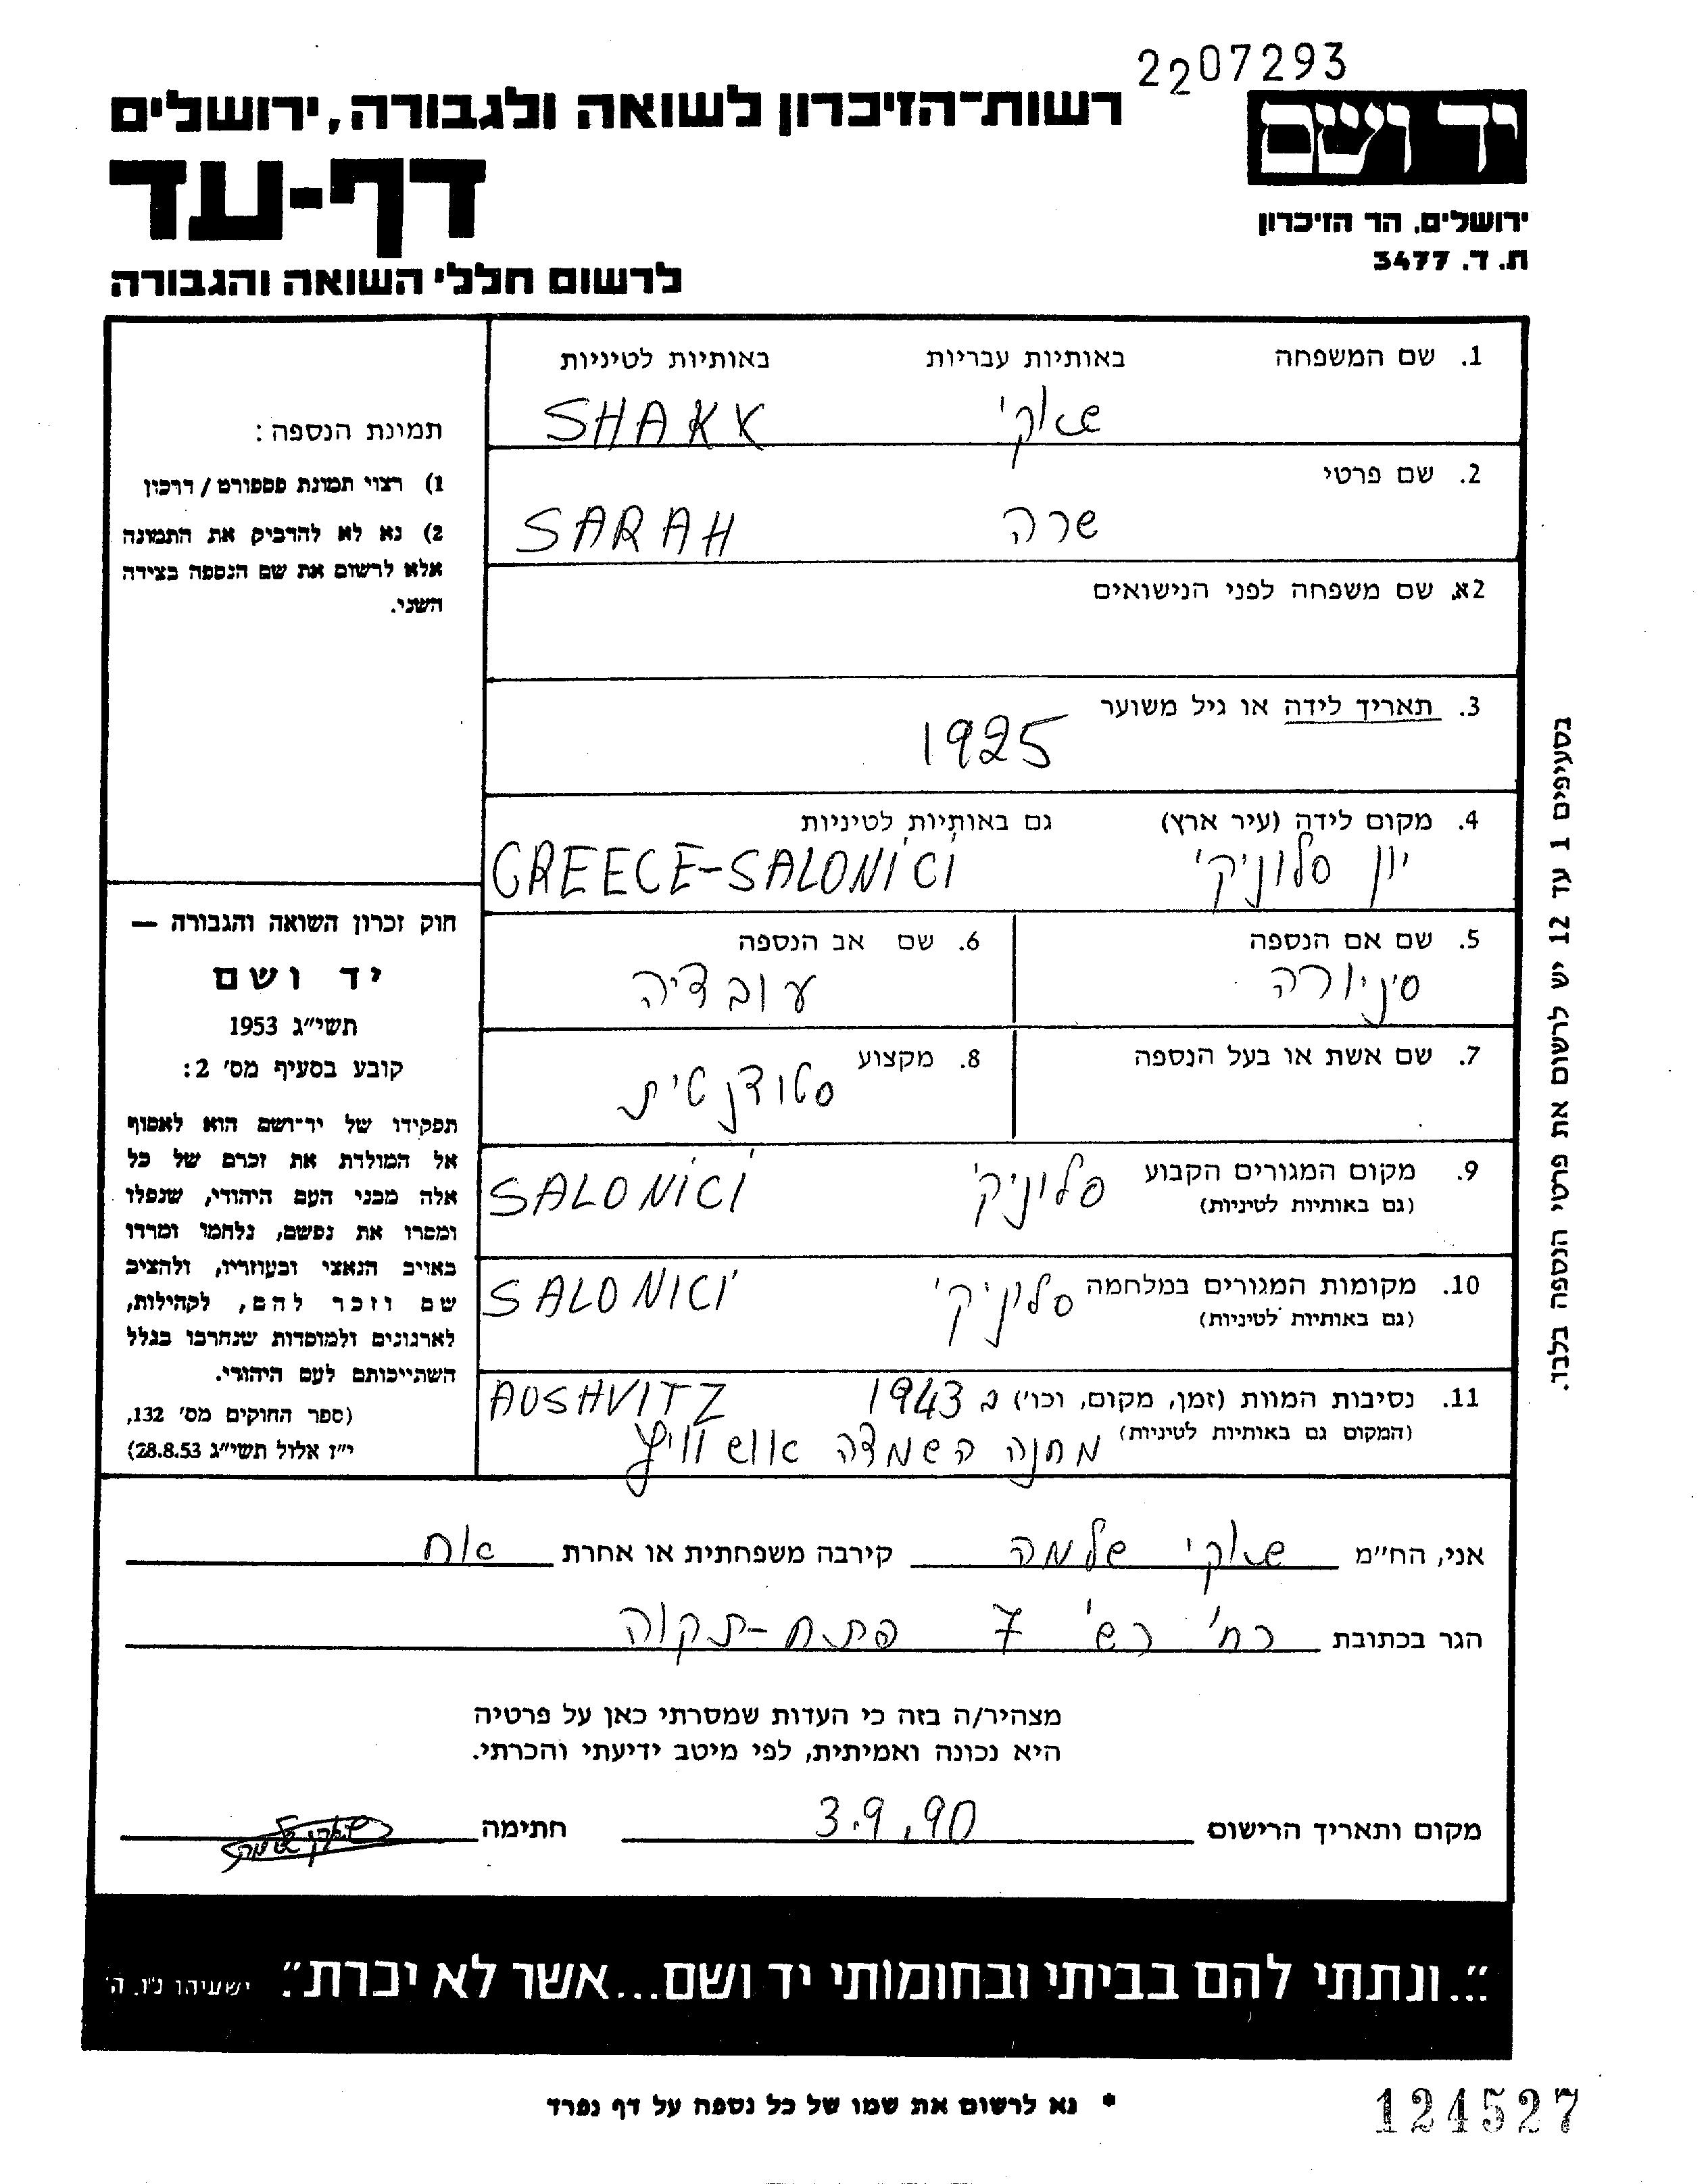 2207293
רשות־הזיכרון לשואה ולגבורה, ירושלים
יד ושם
דף-עד
ירושלים, הר הזיכרון
ת. ד. 3477
לרשום חללי השואה והגבורה
1. שם המשפחה באותיות עבריות באותיות לטיניות
שאקי SHAKK
2. שם פרטי
שרה SARAH
2א. שם משפחה לפני הנישואים
3. תאריך לידה או גיל משוער
1925
4. מקום לידה (עיר ארץ) גם באותיות לטיניות
יון סלוניקי GREECE-SALONICI
5. שם אם הנספה 6. שם אב הנספה
סניורה עובדיה
7. שם אשת או בעל הנספה 8. מקצוע
סטודנטית
9. מקום המגורים הקבוע סלוניקי SALONICI
(גם באותיות לטיניות)
10. מקומות המגורים במלחמה סלוניקי SALONICI
(גם באותיות לטיניות)
11. נסיבות המוות (זמן, מקום, וכו') ב 1943 AUSHVITZ
(המקום גם באותיות לטיניות) מחנה השמדה אושוויץ
תמונת הנספה:
1) רצוי תמונת פספורט / דרכון
2) נא לא להדביק את התמונה
אלא לרשום את שם הנספה בצידה
השני.
חוק זכרון השואה והגבורה —
יד ושם
תשי"ג 1953
קובע בסעיף מס' 2:
תפקידו של יד־ושם הוא לאסוף
אל המולדת את זכרם של כל
אלה מבני העם היהודי, שנפלו
ומסרו את נפשם, נלחמו ומרדו
באויב הנאצי ובעוזריו, ולהציב
שם וזכר להם, לקהילות,
לארגונים ולמוסדות שנחרבו בגלל
השתייכותם לעם היהודי.
(ספר החוקים מס' 132,
י"ז אלול תשי"ג 28.8.53)
בסעיפים 1 עד 12 יש לרשום את פרטי הנספה בלבד.
אני, הח"מ שאקי שלמה קירבה משפחתית או אחרת אח
הגר בכתובת רח' רש'י 7 פתח-תקוה
מצהיר/ה בזה כי העדות שמסרתי כאן על פרטיה
היא נכונה ואמיתית, לפי מיטב ידיעתי והכרתי.
מקום ותאריך הרישום 3.9.90 חתימה שאקי שלמה
"...ונתתי להם בביתי ובחומותי יד ושם...אשר לא יכרת". ישעיהו נ"ו, ה'
* נא לרשום את שמו של כל נספה על דף נפרד
124527